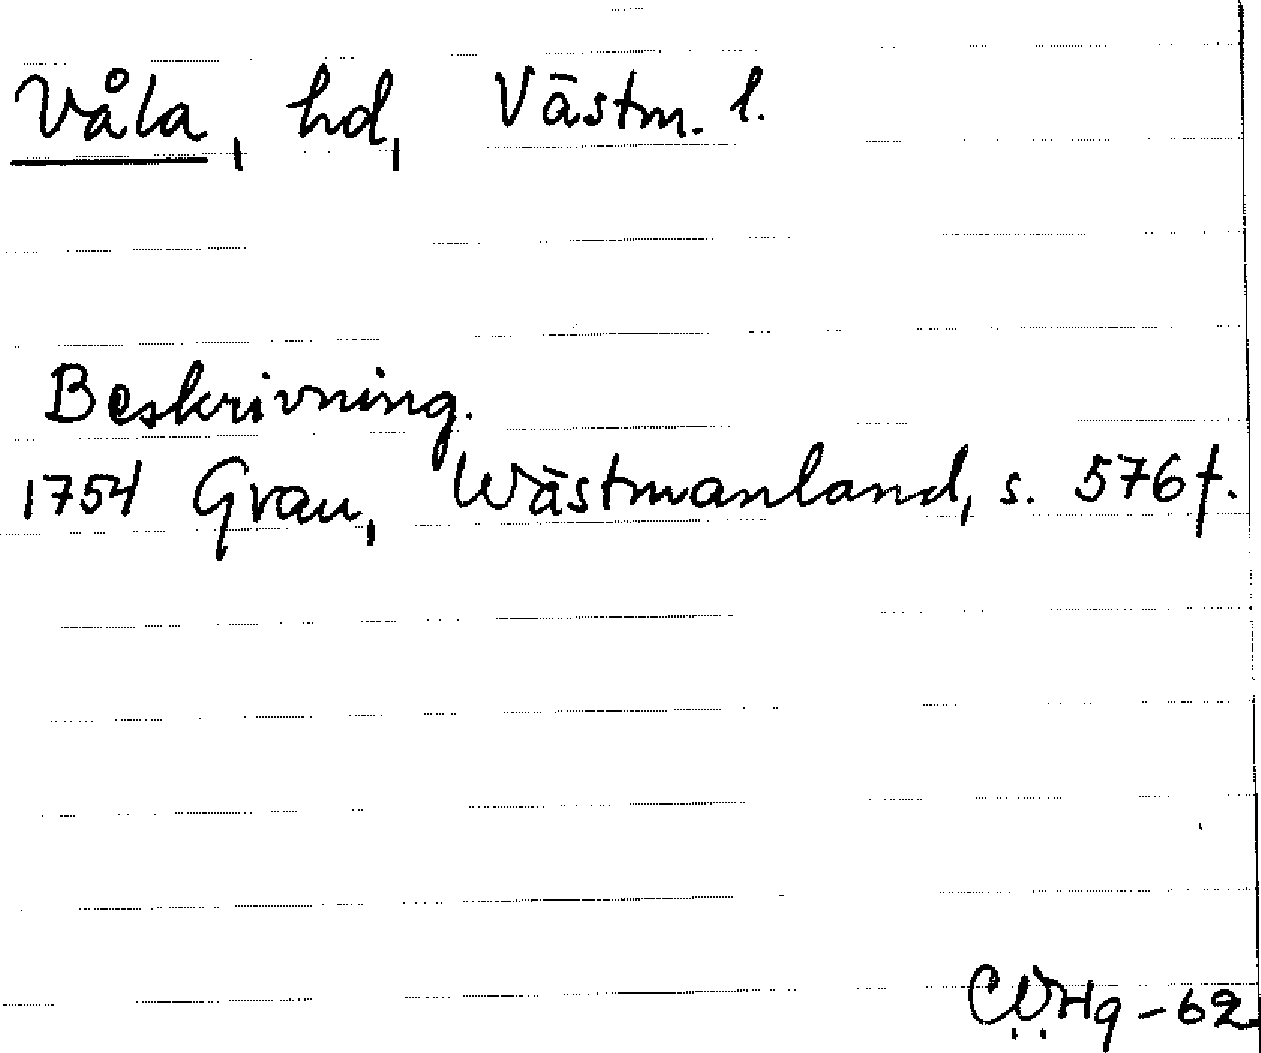 Våla, hd, Västm. l.
Beskrivning.
1754 Grau, Wästmanland, s. 576 f.
CWHg -62